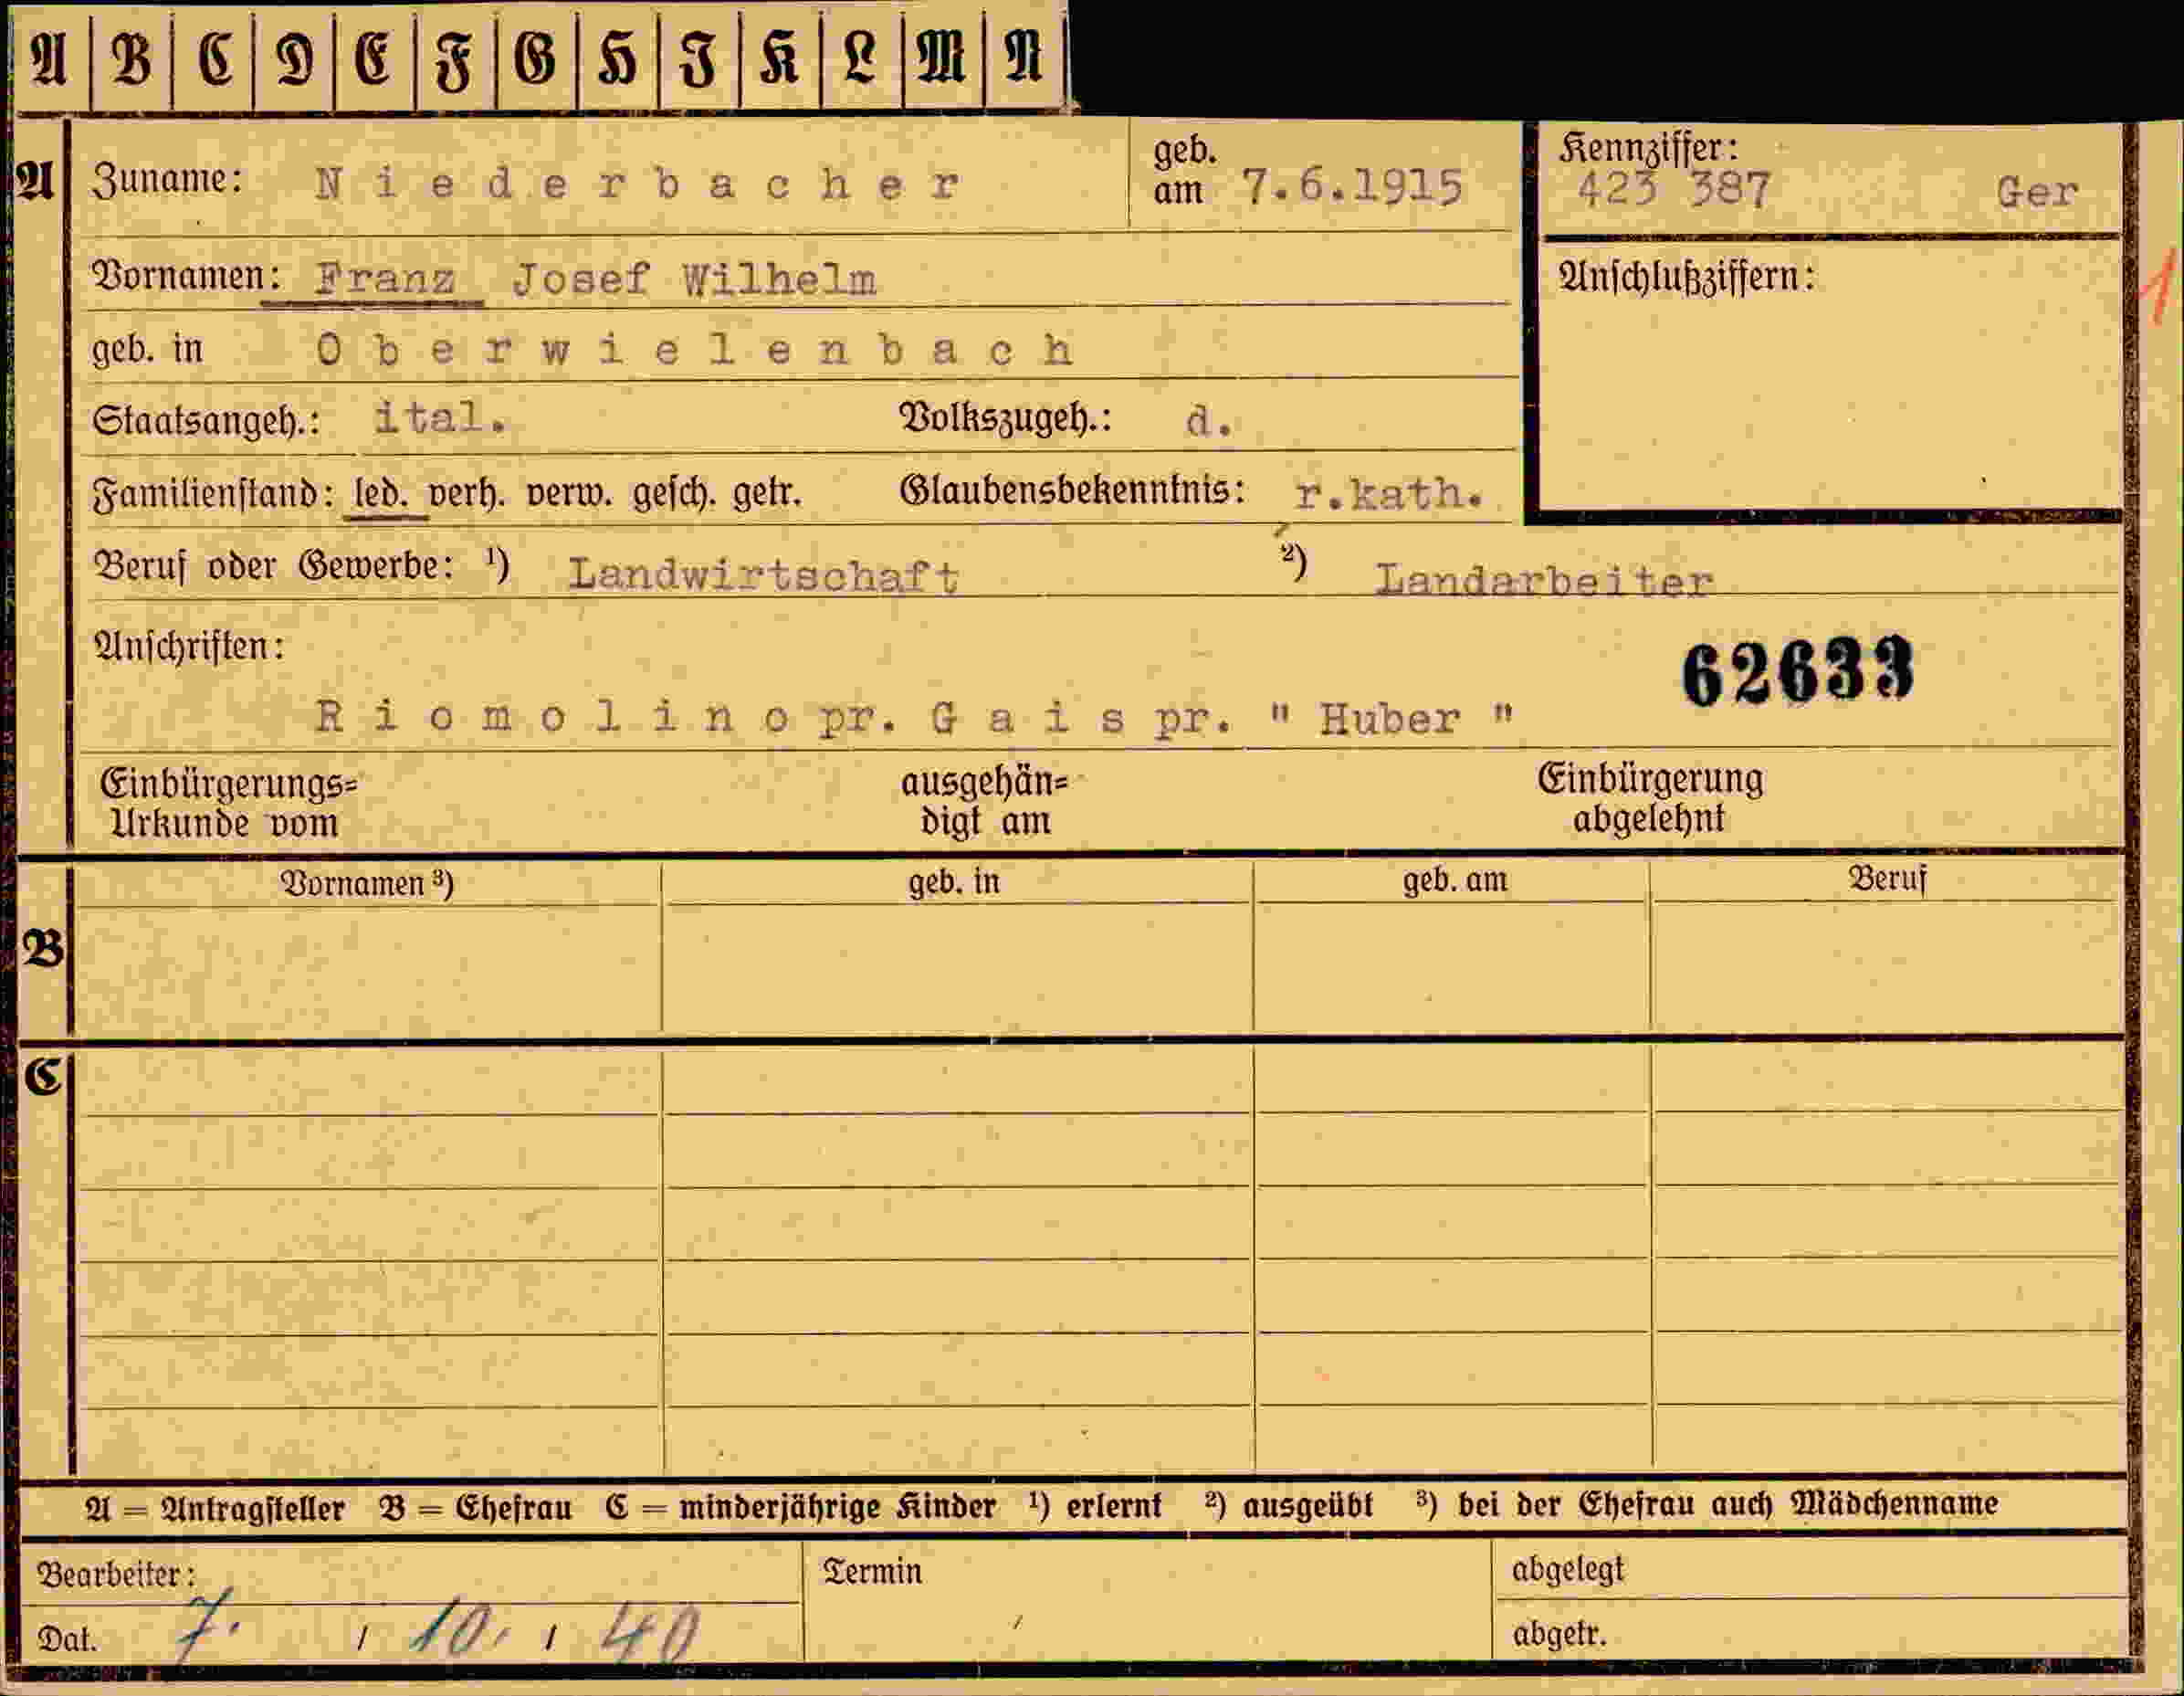 A B C D E F G H I K L M N
A Zuname: Niederbacher geb. am 7.6.1915 Kennziffer: 423 387 Ger
Vornamen: Franz Josef Wilhelm Anschlußziffern: 1
geb. in Oberwielenbach
Staatsangeh.: ital. Volkszugeh.: d.
Familienstand: led. verh. verw. gesch. getr. Glaubensbekenntnis: r.kath.
Beruf oder Gewerbe: ¹) Landwirtschaft ²) Landarbeiter
Anschriften: 62633
Riomolino pr. Gais pr. " Huber "
Einbürgerungs= ausgehän= Einbürgerung
Urkunde vom digt am abgelehnt
Vornamen ³) geb. in geb. am Beruf
B
C
A = Antragsteller B = Ehefrau C = minderjährige Kinder ¹) erlernt ²) ausgeübt ³) bei der Ehefrau auch Mädchenname
Bearbeiter: Termin abgelegt
Dat. 7. / 10. / 40 abgetr.